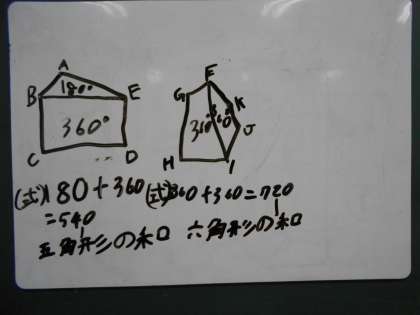 A
B
180°
E
360°
C
D
F
G
K
360°
360°
J
H
I
(式)180+360
=540
五角形の和
(式)360+360=720
六角形の和